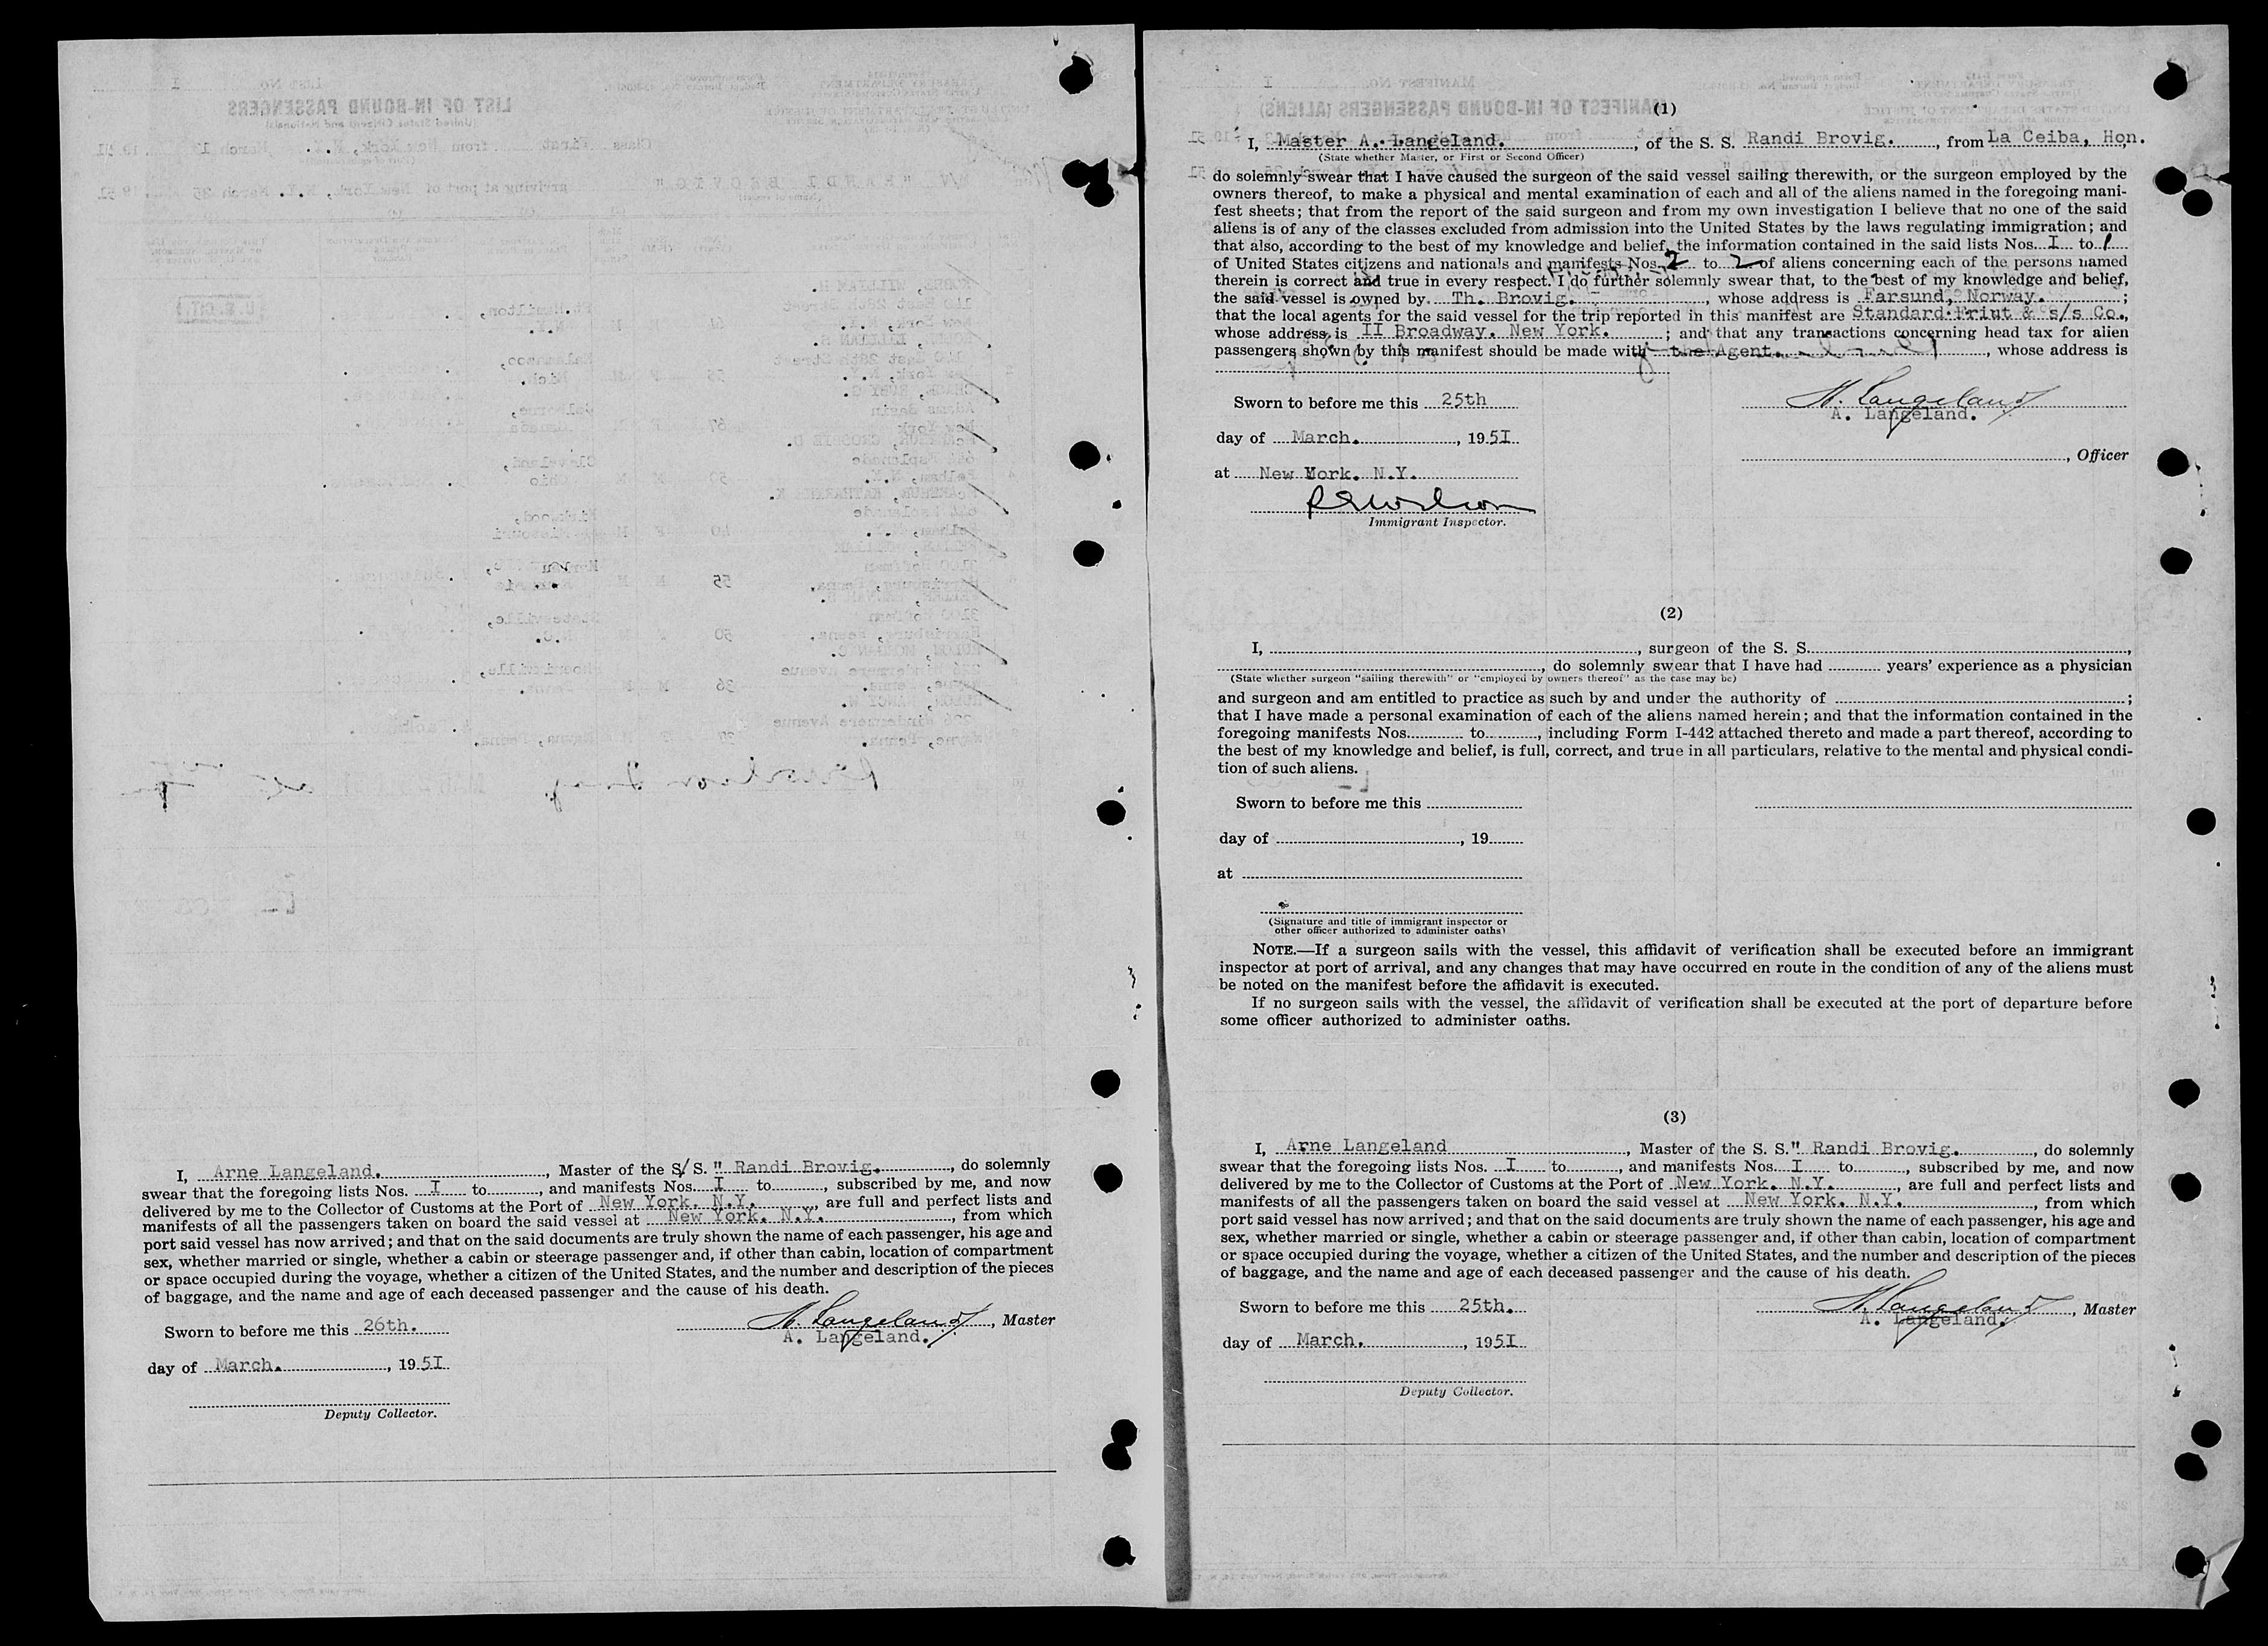 I, Arne Langeland., Master of the S/ S. " Randi Brovig., do solemnly
swear that the foregoing lists Nos. I to, and manifests Nos. I to, subscribed by me, and now
delivered by me to the Collector of Customs at the Port of New York. N.Y., are full and perfect lists and
manifests of all the passengers taken on board the said vessel at New York. N.Y., from which
port said vessel has now arrived; and that on the said documents are truly shown the name of each passenger, his age and
sex, whether married or single, whether a cabin or steerage passenger and, if other than cabin, location of compartment
or space occupied during the voyage, whether a citizen of the United States, and the number and description of the pieces
of baggage, and the name and age of each deceased passenger and the cause of his death.
A. Langeland, Master
Sworn to before me this 26th.
A. Langeland.
day of March., 1951
Deputy Collector.
(1)
I, Master A. Langeland., of the S. S. Randi Brovig., from La Ceiba, Hon.
(State whether Master, or First or Second Officer)
do solemnly swear that I have caused the surgeon of the said vessel sailing therewith, or the surgeon employed by the
owners thereof, to make a physical and mental examination of each and all of the aliens named in the foregoing mani-
fest sheets; that from the report of the said surgeon and from my own investigation I believe that no one of the said
aliens is of any of the classes excluded from admission into the United States by the laws regulating immigration; and
that also, according to the best of my knowledge and belief, the information contained in the said lists Nos. I to 1
of United States citizens and nationals and manifests Nos. 2 to 2 of aliens concerning each of the persons named
therein is correct and true in every respect. I do further solemnly swear that, to the best of my knowledge and belief,
the said vessel is owned by Th. Brovig., whose address is Farsund, Norway.;
that the local agents for the said vessel for the trip reported in this manifest are Standard Friut & s/s Co.,
whose address is II Broadway. New York.; and that any transactions concerning head tax for alien
passengers shown by this manifest should be made with the Agent., whose address is
Sworn to before me this 25th
A. Langeland
A. Langeland.
day of March., 1951
, Officer
at New York. N.Y.
Immigrant Inspector.
(2)
I, , surgeon of the S. S. ,
, do solemnly swear that I have had years' experience as a physician
(State whether surgeon "sailing therewith" or "employed by owners thereof" as the case may be)
and surgeon and am entitled to practice as such by and under the authority of ;
that I have made a personal examination of each of the aliens named herein; and that the information contained in the
foregoing manifests Nos. to , including Form I-442 attached thereto and made a part thereof, according to
the best of my knowledge and belief, is full, correct, and true in all particulars, relative to the mental and physical condi-
tion of such aliens.
Sworn to before me this
day of , 19
at
(Signature and title of immigrant inspector or
other officer authorized to administer oaths)
NOTE.—If a surgeon sails with the vessel, this affidavit of verification shall be executed before an immigrant
inspector at port of arrival, and any changes that may have occurred en route in the condition of any of the aliens must
be noted on the manifest before the affidavit is executed.
If no surgeon sails with the vessel, the affidavit of verification shall be executed at the port of departure before
some officer authorized to administer oaths.
(3)
I, Arne Langeland, Master of the S. S." Randi Brovig., do solemnly
swear that the foregoing lists Nos. I to , and manifests Nos. I to , subscribed by me, and now
delivered by me to the Collector of Customs at the Port of New York. N.Y., are full and perfect lists and
manifests of all the passengers taken on board the said vessel at New York. N.Y., from which
port said vessel has now arrived; and that on the said documents are truly shown the name of each passenger, his age and
sex, whether married or single, whether a cabin or steerage passenger and, if other than cabin, location of compartment
or space occupied during the voyage, whether a citizen of the United States, and the number and description of the pieces
of baggage, and the name and age of each deceased passenger and the cause of his death.
Sworn to before me this 25th.
A. Langeland, Master
A. Langeland.
day of March., 1951
Deputy Collector.